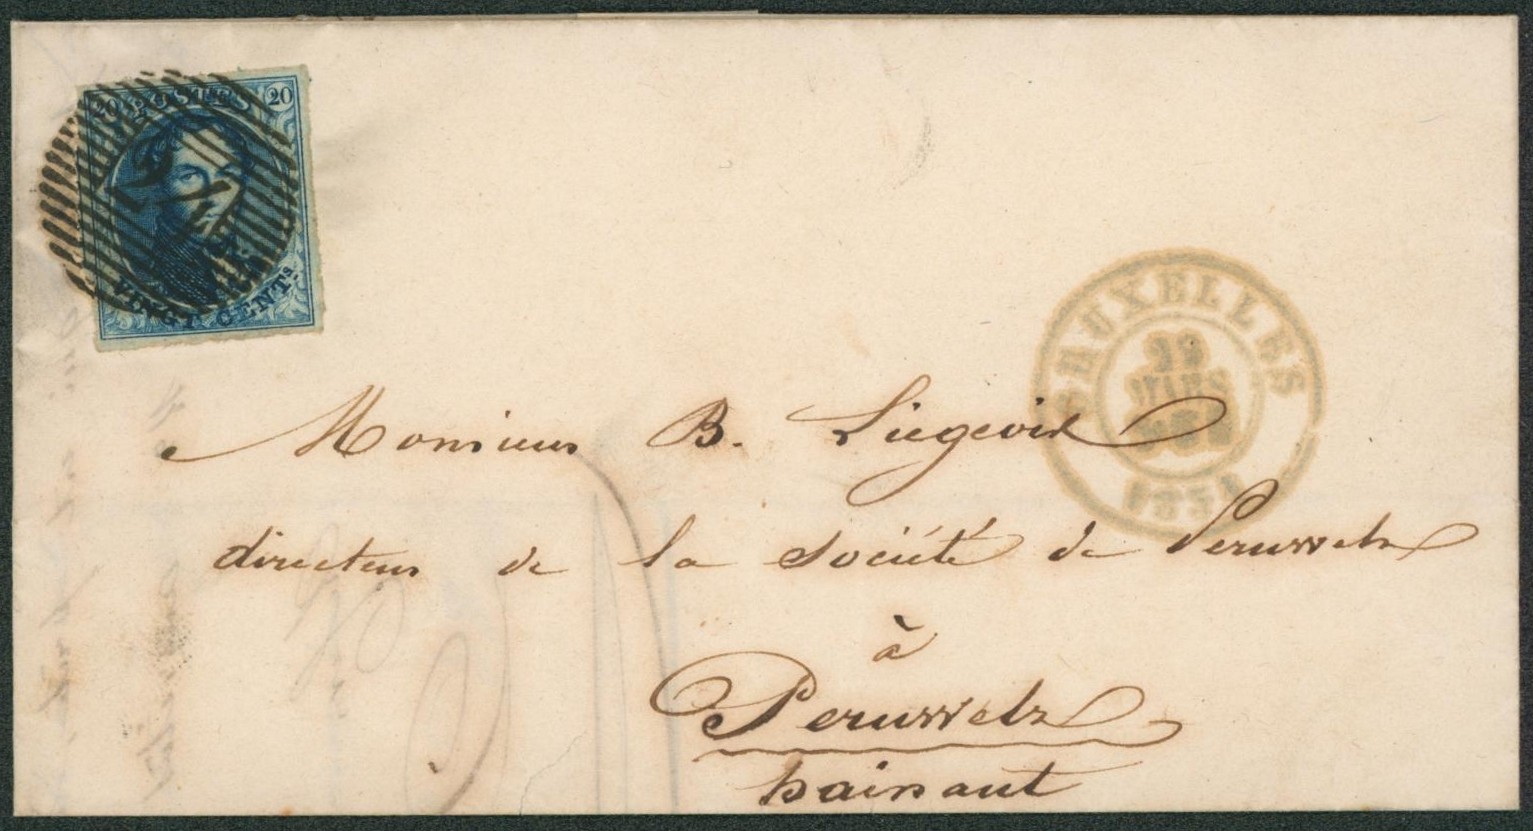 20 POSTES 20
24
VINGT CENTS.
BRUXELLES
22
MARS
1851
Monsieur B. Liegeois
directeur de la Société de Peruwelz
à
Peruwelz
hainaut